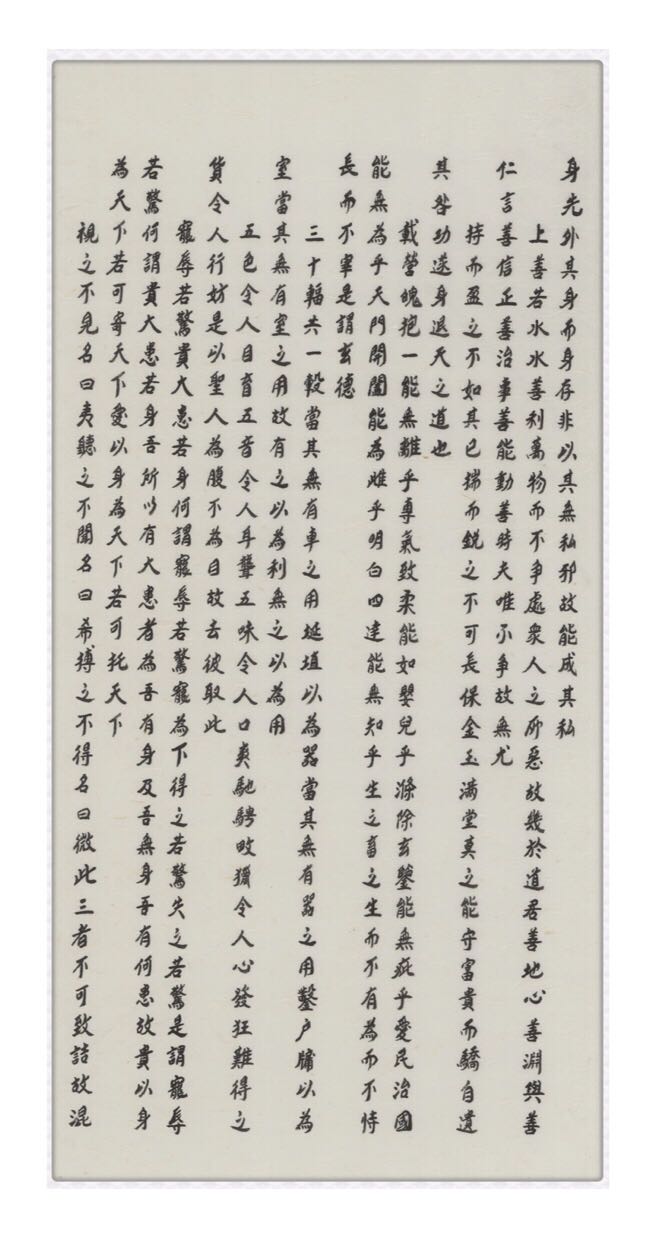 身先外其身而身存非以其無私邪故能成其私
上善若水水善利萬物而不爭處衆人之所惡故幾於道居善地心善淵與善
仁言善信正善治事善能動善時夫唯不爭故無尤
持而盈之不如其已揣而銳之不可長保金玉滿堂莫之能守富貴而驕自遺
其咎功遂身退天之道也
載營魄抱一能無離乎專氣致柔能如嬰兒乎滌除玄鑒能無疵乎愛民治國
能無為乎天門開闔能為雌乎明白四達能無知乎生之畜之生而不有為而不恃
長而不宰是謂玄德
三十輻共一轂當其無有車之用埏埴以為器當其無有器之用鑿戶牖以為
室當其無有室之用故有之以為利無之以為用
五色令人目盲五音令人耳聾五味令人口爽馳騁畋獵令人心發狂難得之
貨令人行妨是以聖人為腹不為目故去彼取此
寵辱若驚貴大患若身何謂寵辱若驚寵為下得之若驚失之若驚是謂寵辱
若驚何謂貴大患若身吾所以有大患者為吾有身及吾無身吾有何患故貴以身
為天下若可寄天下愛以身為天下若可托天下
視之不見名曰夷聽之不聞名曰希搏之不得名曰微此三者不可致詰故混